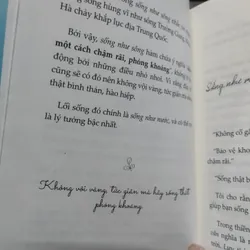 sông hùng vĩ như sông Trường Giang
Hà chảy khắp lục địa Trung Quốc.
Bởi vậy, sống như sông hàm chứa ý nghĩa
một cách chậm rãi, phóng khoáng",
động bởi những điều nhỏ nhoi. Vì sông
cũng sẽ có đó nên không vội vàng, tức giận
thật bình thản, hào hiệp.
Lối sống đó chính là sống như nước, và nó
là lý tưởng bậc nhất.
Không vội vàng, tức giận mà hãy sống thật
phóng khoáng.
Sống như
"Không cố gắ
"Bảo vệ kho
chậm rãi."
"Sống thật b
Tôi cho rằng
giúp bạn sống
Trong
nghĩa là